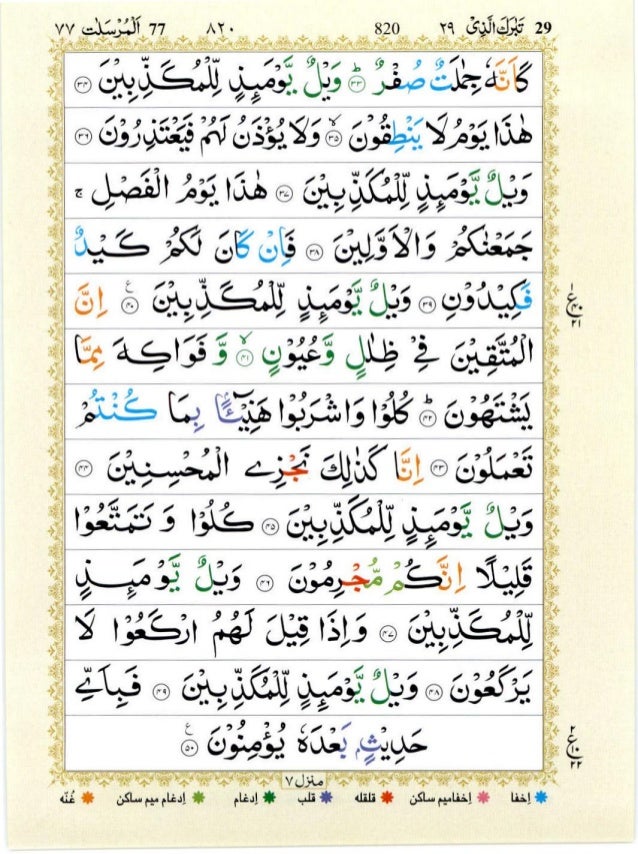 29 تَبٰرَكَ الَّذِىْ ٢٩ 820 ٨٢٠ 77 اَلْمُرْسَلٰت ٧٧
كَاَنَّهٗ جِمٰلَتٌ صُفْرٌ ؕ‏ ﴿۳۳﴾ وَيْلٌ يَّوْمَٮِٕذٍ لِّلْمُكَذِّبِيْنَ‏ ﴿۳۴﴾
هٰذَا يَوْمُ لَا يَنْطِقُوْنَۙ‏ ﴿۳۵﴾ وَلَا يُؤْذَنُ لَهُمْ فَيَعْتَذِرُوْنَ‏ ﴿۳۶﴾
وَيْلٌ يَّوْمَٮِٕذٍ لِّلْمُكَذِّبِيْنَ‏ ﴿۳۷﴾ هٰذَا يَوْمُ الْفَصْلِ‌ۚ
جَمَعْنٰكُمْ وَالْاَوَّلِيْنَ‏ ﴿۳۸﴾ فَاِنْ كَانَ لَكُمْ كَيْدٌ
فَكِيْدُوْنِ‏ ﴿۳۹﴾ وَيْلٌ يَّوْمَٮِٕذٍ لِّلْمُكَذِّبِيْنَ‏ ﴿۴۰﴾ ع اِنَّ
الْمُتَّقِيْنَ فِىْ ظِلٰلٍ وَّعُيُوْنٍۙ‏ ﴿۴۱﴾ وَّ فَوَاكِهَ مِمَّا
يَشْتَهُوْنَؕ‏ ﴿۴۲﴾ كُلُوْا وَاشْرَبُوْا هَنِيْٓـــًٔا بِمَا كُنْتُمْ
تَعْمَلُوْنَ‏ ﴿۴۳﴾ اِنَّا كَذٰلِكَ نَجْزِى الْمُحْسِنِيْنَ‏ ﴿۴۴﴾
وَيْلٌ يَّوْمَٮِٕذٍ لِّلْمُكَذِّبِيْنَ‏ ﴿۴۵﴾ كُلُوْا وَتَمَتَّعُوْا
قَلِيْلًا اِنَّكُمْ مُّجْرِمُوْنَ‏ ﴿۴۶﴾ وَيْلٌ يَّوْمَٮِٕذٍ
لِّلْمُكَذِّبِيْنَ‏ ﴿۴۷﴾ وَاِذَا قِيْلَ لَهُمُ ارْكَعُوْا لَا
يَرْكَعُوْنَ‏ ﴿۴۸﴾ وَيْلٌ يَّوْمَٮِٕذٍ لِّلْمُكَذِّبِيْنَ‏ ﴿۴۹﴾ فَبِاَىِّ
حَدِيْثٍۢ بَعْدَهٗ يُؤْمِنُوْنَ‏ ﴿۵۰﴾ ع
١ ع ۴۰ ٢١
٢ ع ١٠ ٢٢
منزل ٧
اِخفا اِخفامیم ساکن قلقله قلب اِدغام اِدغام میم ساکن غُنّه